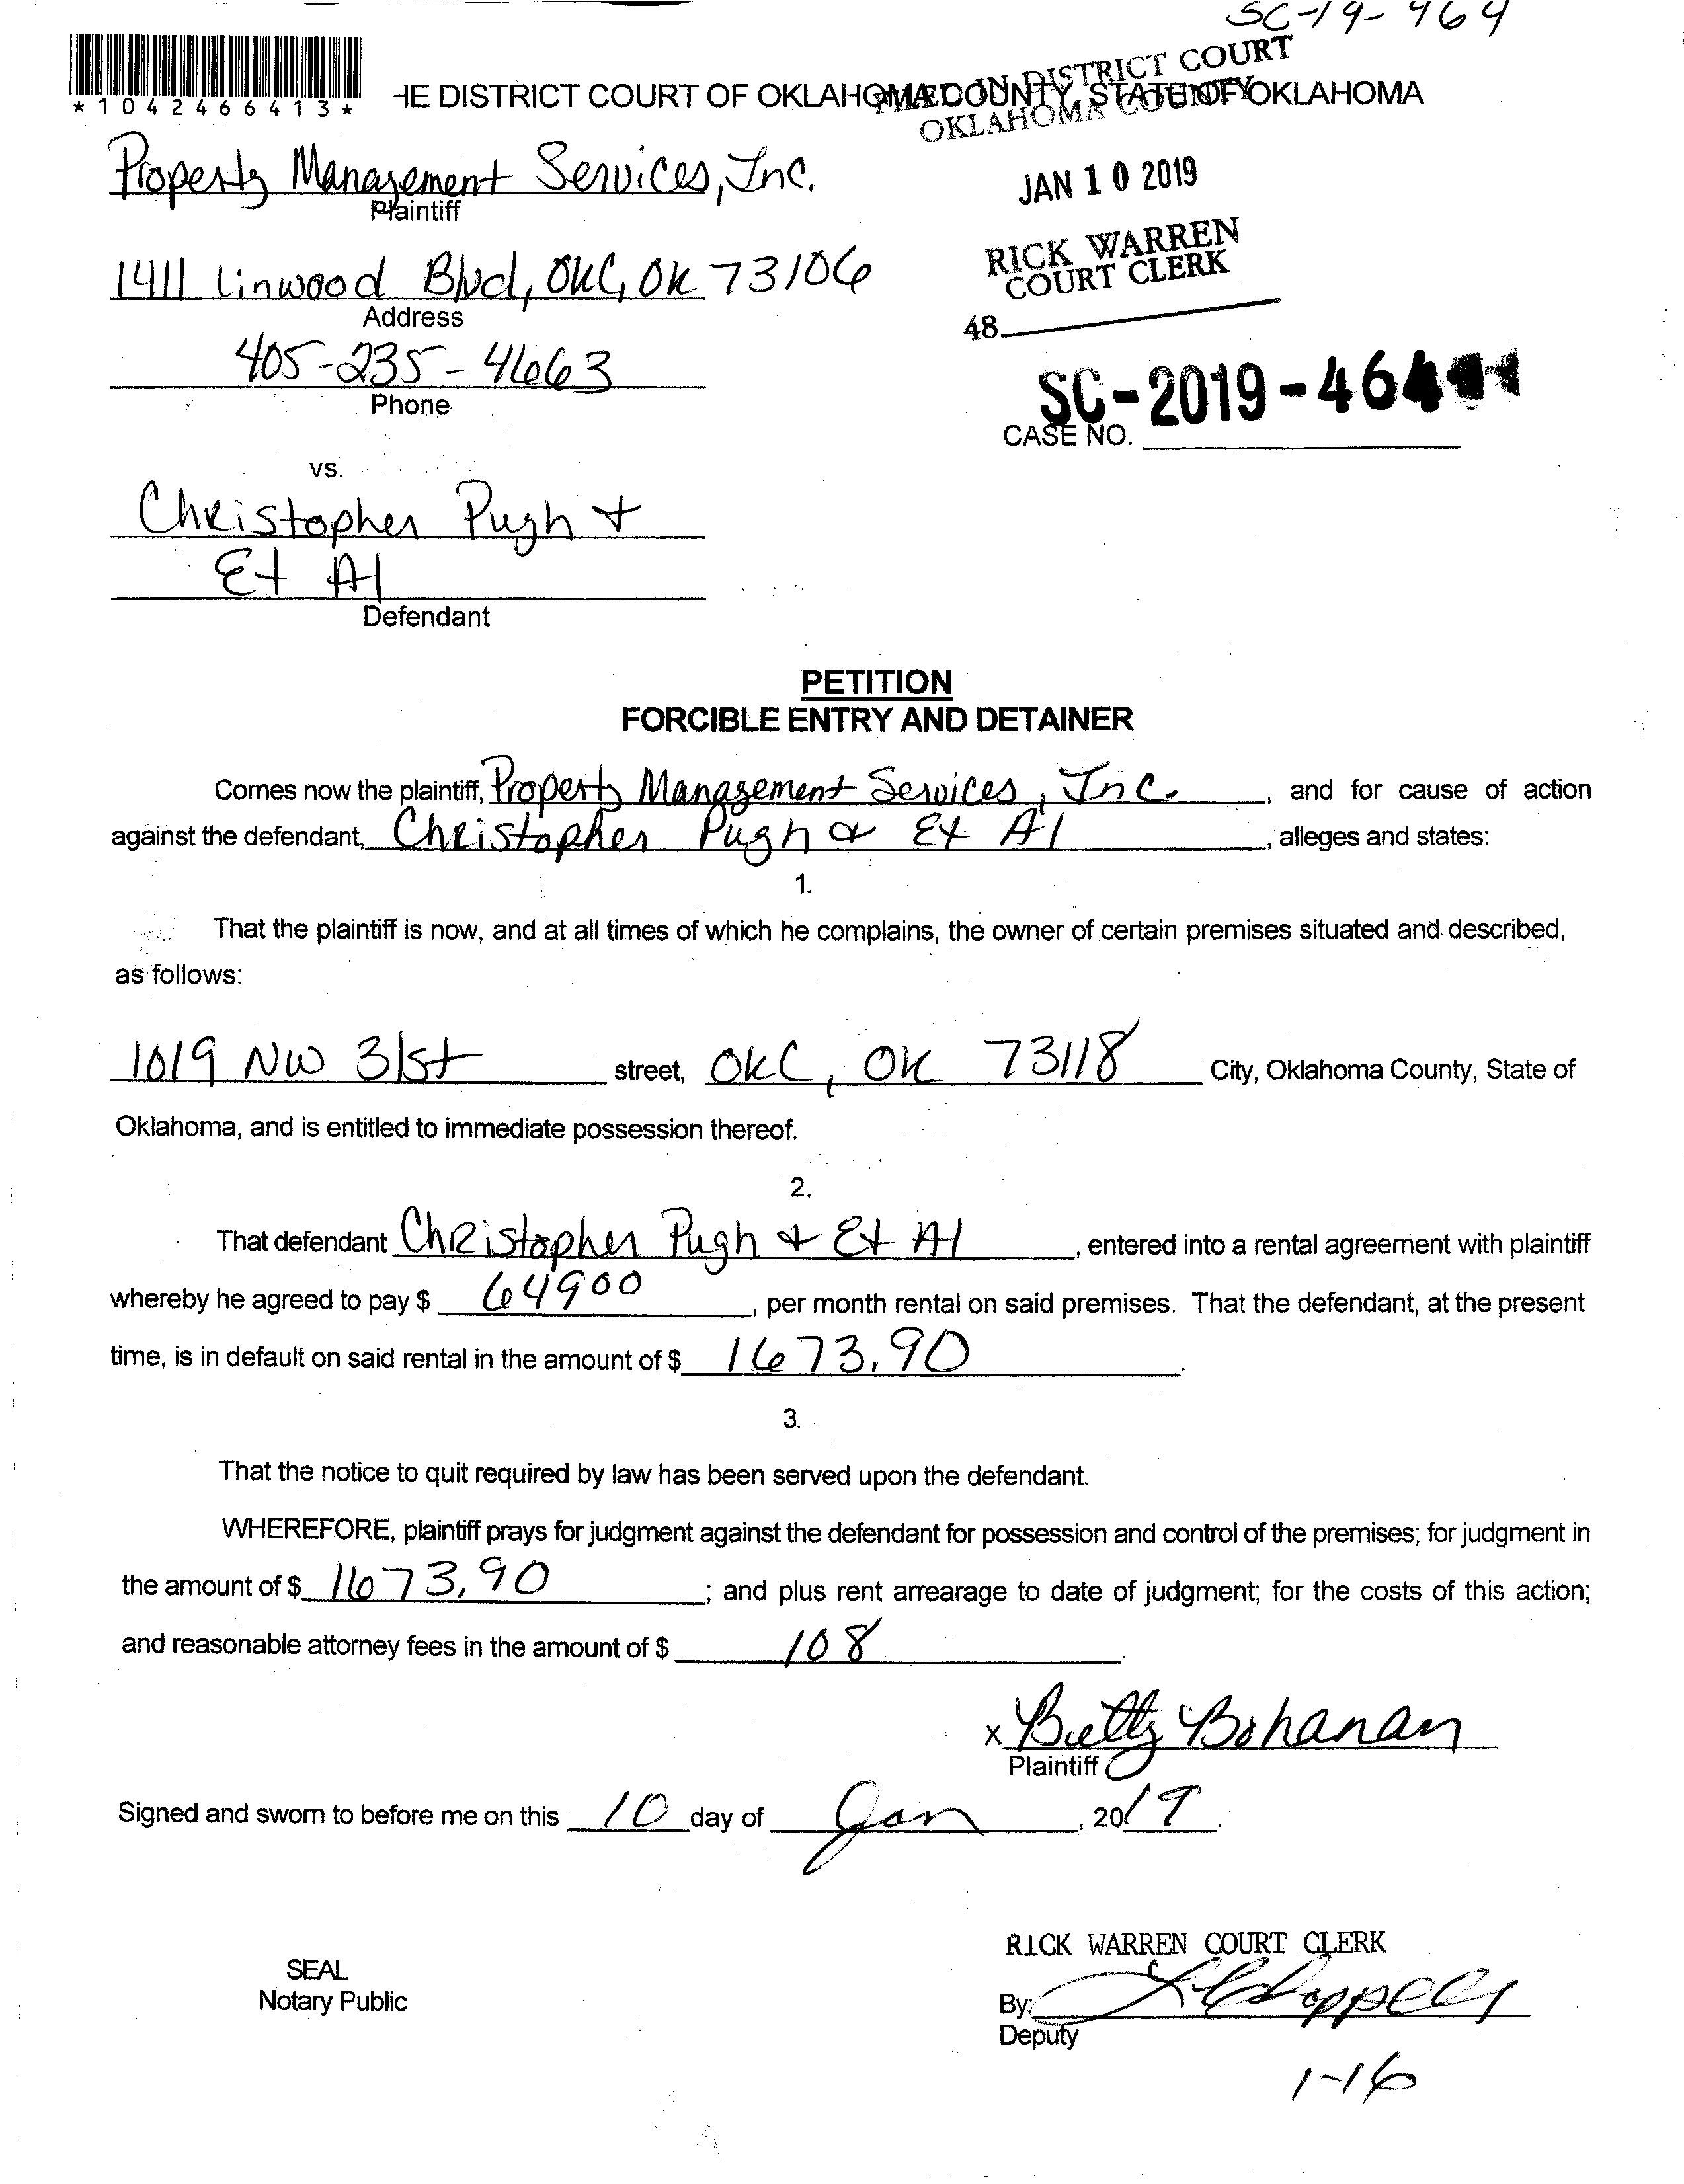 SC-19-464
*1042466413*
HE DISTRICT COURT OF OKLAHOMA COUNTY, STATE OF OKLAHOMA
FILED IN DISTRICT COURT
OKLAHOMA COUNTY
Property Management Services, Inc.
Plaintiff
JAN 10 2019
RICK WARREN
COURT CLERK
1411 Linwood Blvd, OKC, OK 73106
Address
48
405-235-4663
Phone
SC-2019-464
CASE NO.
vs.
Christopher Pugh &
Et Al
Defendant
PETITION
FORCIBLE ENTRY AND DETAINER
Comes now the plaintiff, Property Management Services, Inc. , and for cause of action
against the defendant, Christopher Pugh & Et Al , alleges and states:
1.
That the plaintiff is now, and at all times of which he complains, the owner of certain premises situated and described,
as follows:
1019 NW 31st street, OKC, OK 73118 City, Oklahoma County, State of
Oklahoma, and is entitled to immediate possession thereof.
2.
That defendant Christopher Pugh & Et Al , entered into a rental agreement with plaintiff
whereby he agreed to pay $ 64900 , per month rental on said premises. That the defendant, at the present
time, is in default on said rental in the amount of $ 1673.90 .
3.
That the notice to quit required by law has been served upon the defendant.
WHEREFORE, plaintiff prays for judgment against the defendant for possession and control of the premises; for judgment in
the amount of $ 1673.90 ; and plus rent arrearage to date of judgment; for the costs of this action;
and reasonable attorney fees in the amount of $ 108 .
x Betty Bohanan
Plaintiff
Signed and sworn to before me on this 10 day of Jan , 2019.
RICK WARREN COURT CLERK
SEAL
Notary Public
By:
Deputy
1-16